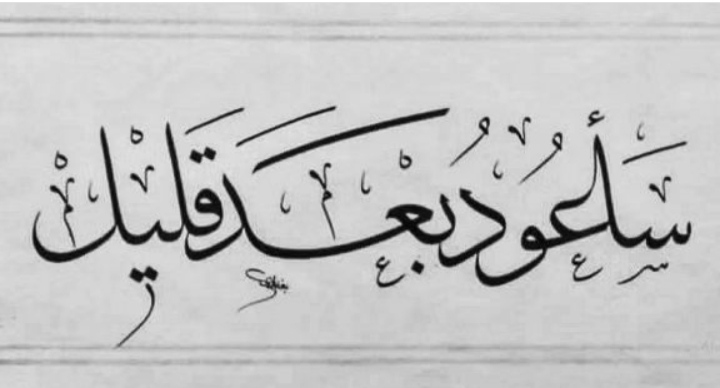 سَأَعُودُ بَعْدَ قَلِيْلٍ